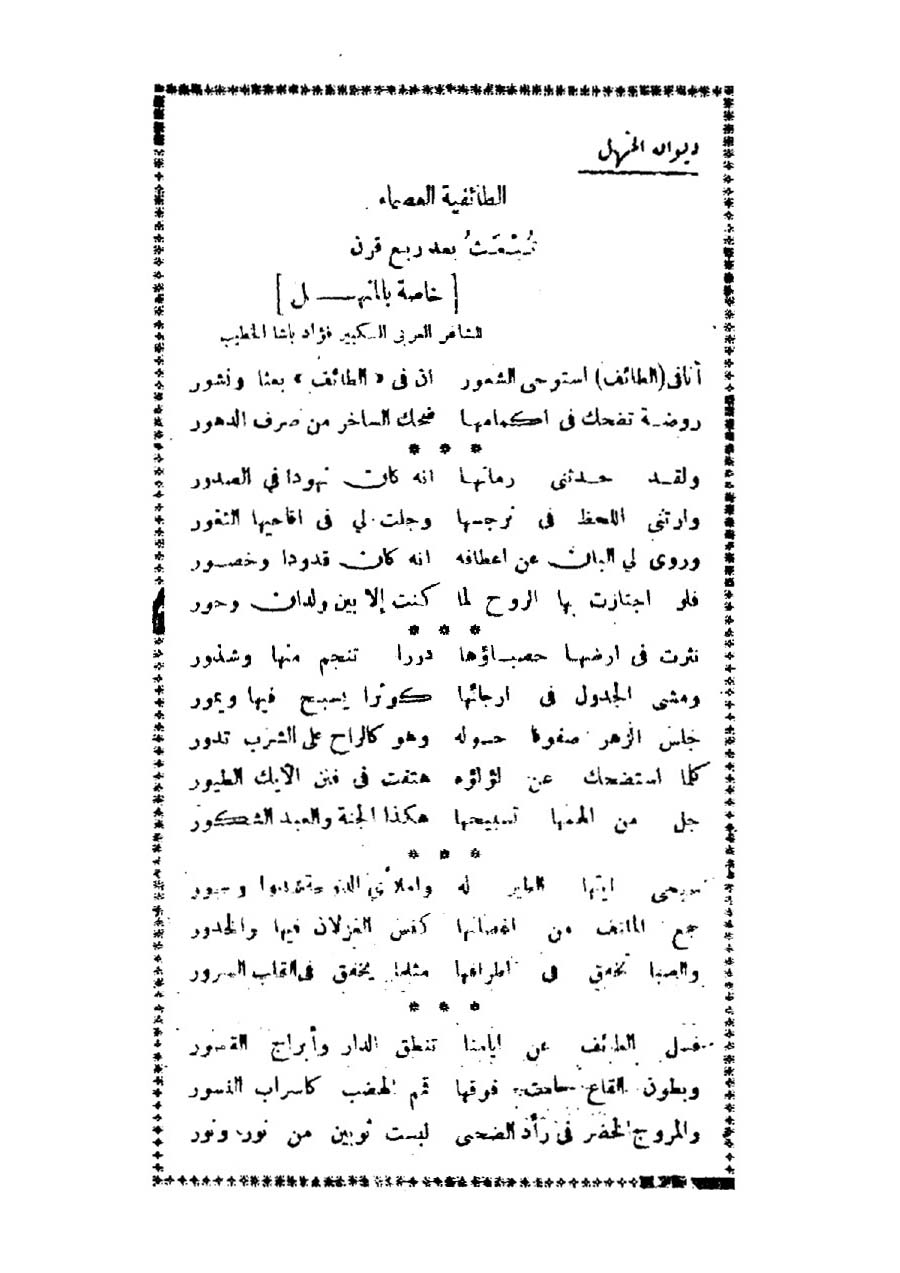 ديوان المنهل
الطائفية العصماء
تُبْعَثُ بعد ربع قرن
[ خاصة بالمنهـــل ]
للشاعر العربى الكبير فؤاد باشا الخطيب
أنا فى (الطائف) استوحى الشعور ان فى «الطائف» بعثا ونشور
روضة تضحك فى اكمامها ضحك الساخر من صرف الدهور
* * *
ولقد حدثنى رمانها انه كان نهودا في الصدور
وارتنى اللحظ فى نرجسها وجلت لي فى اقاحيها الثغور
وروى لي البان عن اعطافه انه كان قدودا وخصور
فلو اجتازت بها الروح لما كنت إلا بين ولدان وحور
* * *
نثرت فى ارضها حصباؤها دررا تنجم منها وشذور
ومشى الجدول فى ارجائها كوثرا يسبح فيها ويمور
جلس الزهر صفوفا حوله وهو كالراح على الشرب تدور
كلما استضحك عن لؤلؤه هتفت فى فنن الأيك الطيور
جل من الهمها تسبيحها هكذا الجنة والعبد الشكور
* * *
سبحى ايتها الطير له واملأي وحبور
جمع من اغصانها كنس الغزلان فيها والخدور
والصبا تخفق فى اطرافها مثلما يخفق فى القلب السرور
* * *
فسل الطائف عن ايامنا تنطق الدار وأبراج القصور
وبطون القاع حامت فوقها قمم الهضب كاسراب النسور
والمروج الخضر فى رأد الضحى لبست ثوبين من نور ونور